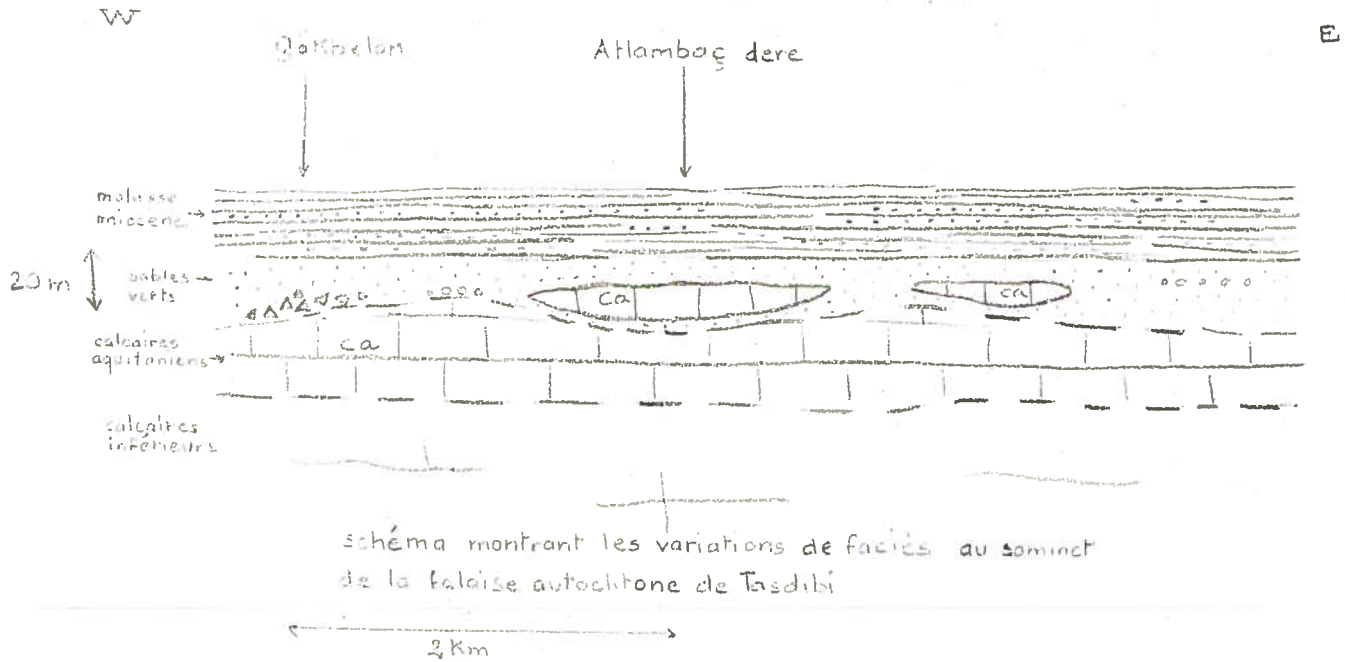 W
E
Atlambaç dere
molasse
miocène
20 m
sables
verts
ca
ca
calcaires
aquitaniens
ca
calcaires
inférieurs
schéma montrant les variations de faciès au sommet
de la falaise autochtone de Tasdibi
2 Km